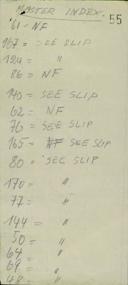 MASTER INDEX
55
61 = NF
167 = SEE SLIP
124 = "
86 = NF
140 = SEE SLIP
62 = NF
76 = SEE SLIP
165 = NF SEE SLIP
80 = SEE SLIP
170 = "
77 = "
144 = "
50 = "
64 = "
69 = "
48 = "